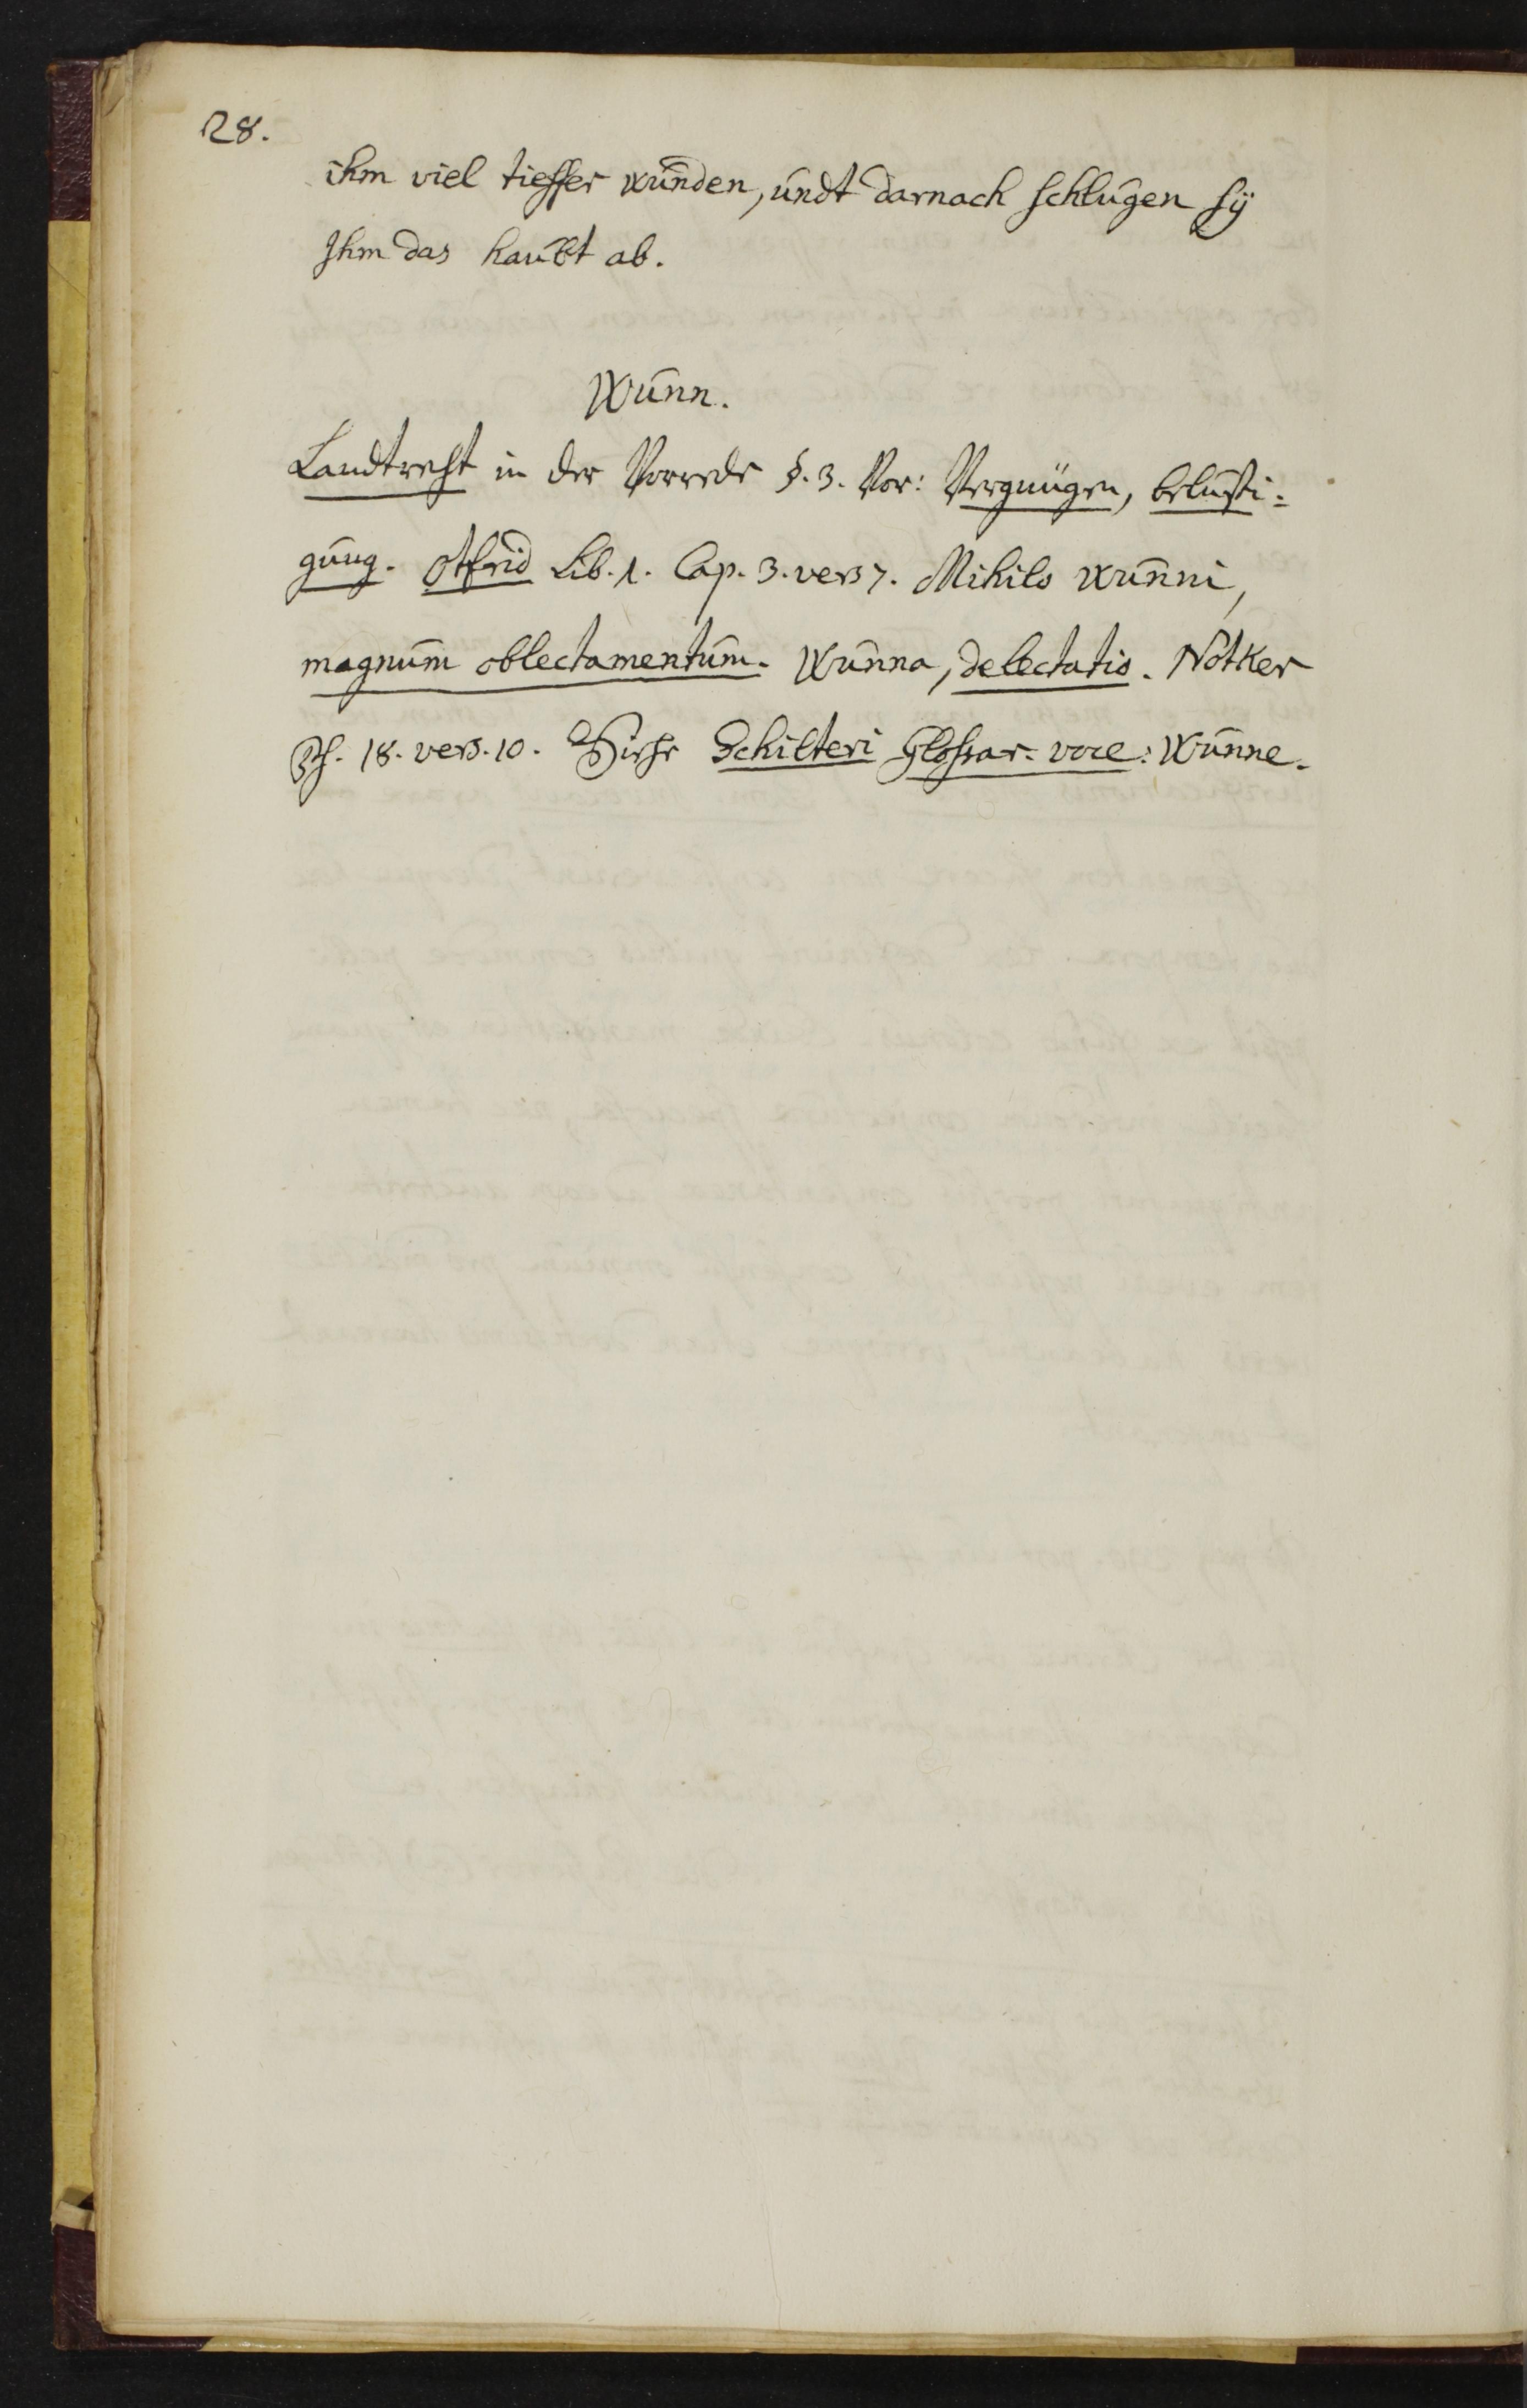 28.
ihm viel tieffer wunden, undt darnach schlugen sÿ
Ihm das haubt ab.
Wunn.
Landtrecht in der Vorrede §. 3. Vor: Vergnügen, belusti=
gung. Otfrid Lib. 1. Cap. 3. vers 7. Mihilo wunni,
magnum oblectamentum. Wunna, delectatio. Notker
Ps. 18. vers. 10. Siehe Schilteri Glossar. voce: Wunne.